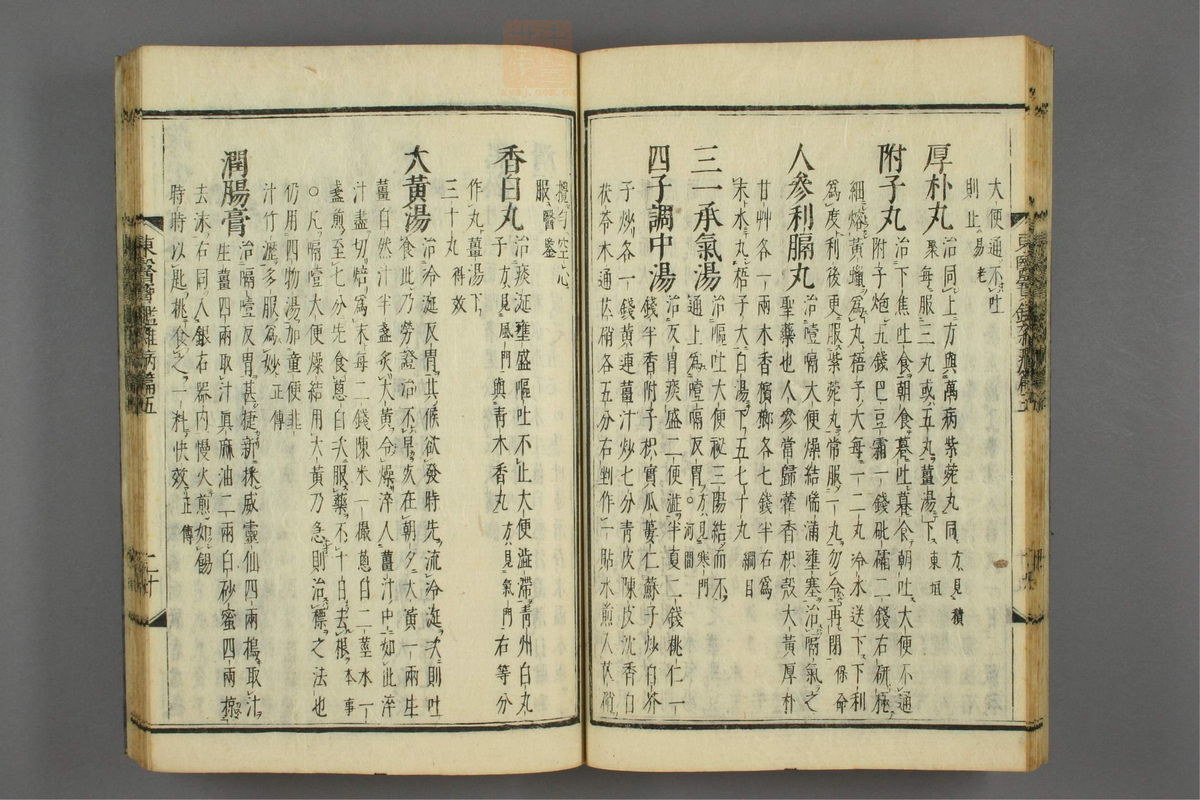 大便通不吐
則止易老
厚朴丸治同上方與萬病紫菀丸同方見積
聚每服三丸或五丸薑湯下東垣
附子丸治下焦吐食朝食暮吐暮食朝吐大便不通
附子炮五錢巴豆霜一錢砒礵二錢右硏極
細熔黃蠟爲丸梧子大每一二丸冷水送下下利
爲度利後更服紫菀丸常服一丸勿令再閉保命
人參利膈丸治噎膈大便燥結喘滿壅塞治膈氣之
聖藥也人參當歸藿香枳殼大黃厚朴
甘艸各一兩木香檳榔各七錢半右爲
末水丸梧子大白湯下五七十丸綱目
三一承氣湯治嘔吐大便祕三陽結而不
通上爲噎膈反胃方見寒門○河間
四子調中湯治反胃痰盛二便澁半夏二錢桃仁一
錢半香附子枳實瓜蔞仁蘇子炒白芥
子炒各一錢黃連薑汁炒七分靑皮陳皮沈香白
茯苓木通芒硝各五分右剉作一貼水煎入芒硝
攪勻空心
服醫鑒
香白丸治痰涎壅盛嘔吐不止大便澁滯靑州白丸
子方見風門與靑木香丸方見氣門右等分
作丸薑湯下
三十丸得效
大黃湯治冷涎反胃其候欲發時先流冷涎次則吐
食此乃勞證治不早死在朝夕大黃一兩生
薑自然汁半盞炙大黃令燥淬入薑汁中如此淬
汁盡切焙爲末每二錢陳米一撮葱白二莖水一
盞煎至七分先食葱白次服藥不十日去根本事
○凡膈噎大便燥結用大黃乃急則治標之法也
仍用四物湯加童便韭
汁竹瀝多服爲妙正傳
潤腸膏治膈噎反胃甚捷新採威靈仙四兩搗取汁
生薑四兩取汁眞麻油二兩白砂蜜四兩掠
去沫右同入銀石器內慢火煎如餳
時時以匙桃食之一料快效正傳
東醫寶鑑雜病篇五
二十